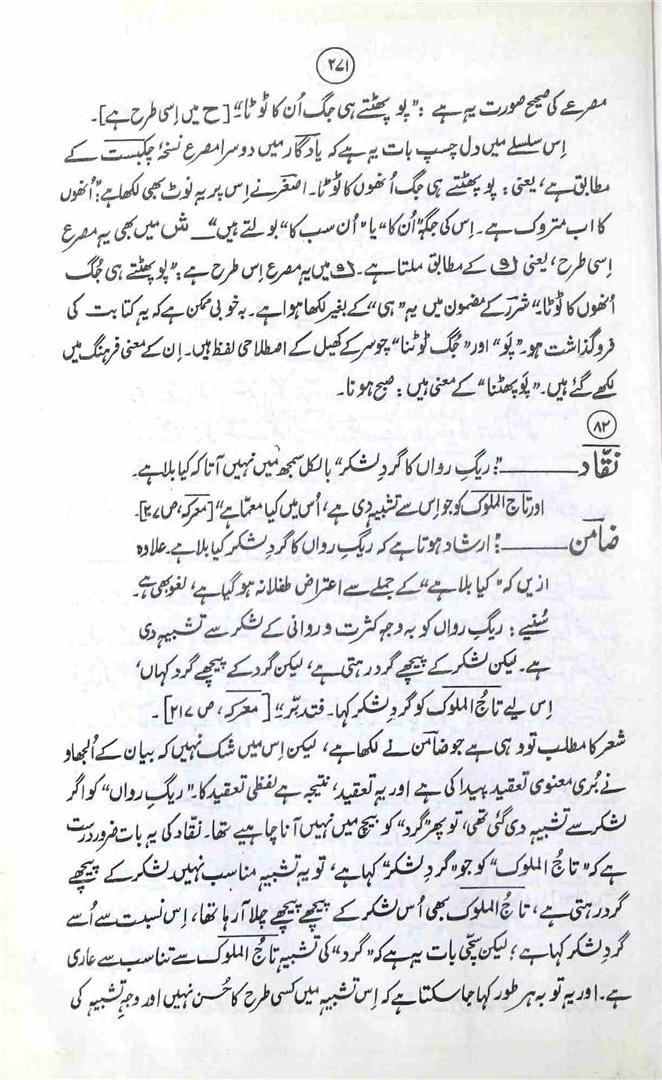 ۲۷۱
مصرعے کی صحیح صورت یہ ہے : "پو پھٹتے ہی جگ اُن کا ٹوٹا" [ح میں اِسی طرح ہے]۔
اِس سلسلے میں دل چسپ بات یہ ہے کہ یادگار میں دوسرا مصرع نسخۂ چکبست کے
مطابق ہے، یعنی : پو پھٹتے ہی جگ اُنھوں کا ٹوٹا۔ اصغر نے اِس پر یہ نوٹ بھی لکھا ہے: "اُنھوں
کا اب متروک ہے۔ اِس کی جگہ "اُن کا" یا "اُن سب کا" بولتے ہیں"۔ ش میں بھی یہ مصرع
اِسی طرح، یعنی کے مطابق ملتا ہے۔ میں یہ مصرع اِس طرح ہے : "پو پھٹتے ہی جُگ
اُنھوں کا ٹوٹا"۔ شرر کے مضمون میں یہ "ہی" کے بغیر لکھا ہوا ہے۔ بہ خوبی ممکن ہے کہ یہ کتابت کی
فروگذاشت ہو۔ "پَو" اور "جُگ ٹوٹنا" چوسر کے کھیل کے اصطلاحی لفظ ہیں۔ اِن کے معنی فرہنگ میں
لکھے گئے ہیں۔ "پَو پھٹنا" کے معنی ہیں : صبح ہونا۔
۸۲
نقّاد ــــــ : "ریگِ رواں کا گردِ لشکر" بالکل سمجھ میں نہیں آتا کہ کیا بلا ہے۔
اور تاج الملوک کو جو اِس سے تشبیہ دی ہے، اُس میں کیا معمّا ہے" [معرکہ، ص ۲۷]۔
ضامن ــــــ : ارشاد ہوتا ہے کہ ریگِ رواں کا گردِ لشکر کیا بلا ہے۔ علاوہ
ازیں کہ "کیا بلا ہے" کے جملے سے اعتراض طفلانہ ہو گیا ہے، لغو بھی ہے۔
سُنیے : ریگِ رواں کو بہ وجہِ کثرت و روانی کے لشکر سے تشبیہ دی
ہے۔ لیکن لشکر کے پیچھے گرد رہتی ہے، لیکن گرد کے پیچھے گرد کہاں،
اِس لیے تاجُ الملوک کو گردِ لشکر کہا۔ فتدبّر" [معرکہ، ص ۲۱۷]۔
شعر کا مطلب تو وہی ہے جو ضامن نے لکھا ہے، لیکن اِس میں شک نہیں کہ بیان کے اُلجھاو
نے بُری معنوی تعقید پیدا کی ہے اور یہ تعقید، نتیجہ ہے لفظی تعقید کا۔ "ریگِ رواں" کو اگر
لشکر سے تشبیہ دی گئی تھی، تو پھر "گرد" کو بیچ میں نہیں آنا چاہیے تھا۔ نقّاد کی یہ بات ضرور درست
ہے کہ "تاجُ الملوک" کو جو "گردِ لشکر" کہا ہے، تو یہ تشبیہ مناسب نہیں۔ لشکر کے پیچھے
گرد رہتی ہے، تاجُ الملوک بھی اُس لشکر کے پیچھے پیچھے چلا آ رہا تھا، اِس نسبت سے اُسے
گردِ لشکر کہا ہے؛ لیکن سچّی بات یہ ہے کہ "گرد" کی تشبیہ تاجُ الملوک سے تناسب سے عاری
ہے۔ اور یہ تو بہ ہر طور کہا جا سکتا ہے کہ اِس تشبیہ میں کسی طرح کا حُسن نہیں اور وجہِ تشبیہ کی